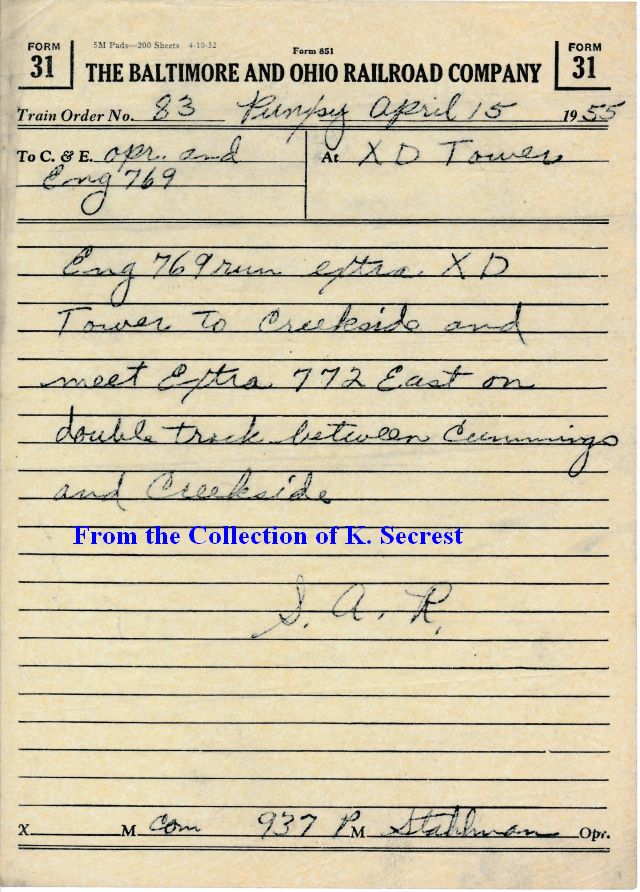 FORM 31
5M Pads—200 Sheets 4-10-52
Form 851
FORM 31
THE BALTIMORE AND OHIO RAILROAD COMPANY
Train Order No. 83 Punxsy April 15 1955
To C. & E. opr. and
Eng 769
At XD Tower
Eng 769 run extra XD
Tower to Creekside and
meet Extra 772 East on
double track between Cummings
and Creekside
From the Collection of K. Secrest
S. A. R.
X M com 937 P M Stahlman Opr.